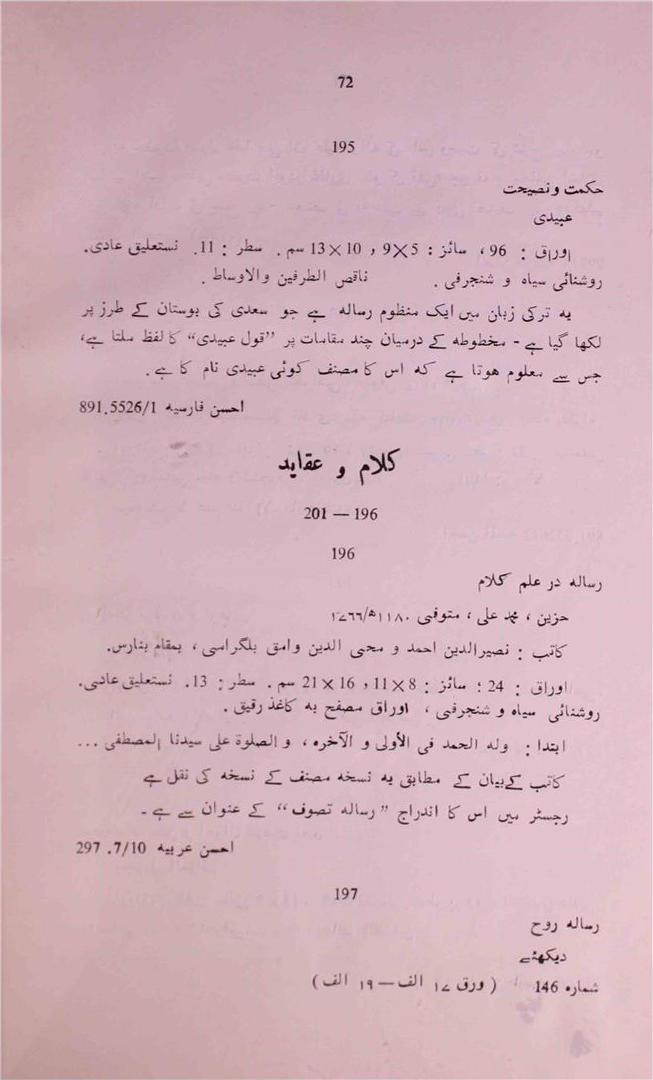 72
195
حکمت و نصیحت
عبیدی
اوراق : 96، سائز : 5×9 و 10×13 سم . سطر : 11. نستعلیق عادی.
روشنائی سیاه و شنجرفی . ناقص الطرفین والاوساط .
یه ترکی زبان میں ایک منظوم رساله هے جو سعدی کی بوستان کے طرز پر
لکھا گیا هے - مخطوطه کے درمیان چند مقامات پر ”قول عبیدی“ کا لفظ ملتا هے،
جس سے معلوم هوتا هے که اس کا مصنف کوئی عبیدی نام کا هے .
احسن فارسیه 891.5526/1
کلام و عقاید
196 — 201
196
رساله در علم کلام
حزین ، محمد علی ، متوفی ۱۱۸۰ھ/۱۷۶۶
کاتب : نصیرالدین احمد و محی الدین وامق بلگرامی ، بمقام بنارس.
اوراق : 24 ؛ سائز : 8×11 و 16×21 سم . سطر : 13. نستعلیق عادی.
روشنائی سیاه و شنجرفی ، اوراق مصفح به کاغذ رقیق .
ابتدا : وله الحمد فی الأولی و الآخره ، و الصلوة علی سیدنا المصطفی ...
کاتب کے بیان کے مطابق یه نسخه مصنف کے نسخه کی نقل هے
رجسٹر میں اس کا اندراج ”رساله تصوف“ کے عنوان سے هے -
احسن عربیه 297.7/10
197
رساله روح
دیکھئے
شماره 146 ( ورق ۱۷ الف — ۱۹ الف )